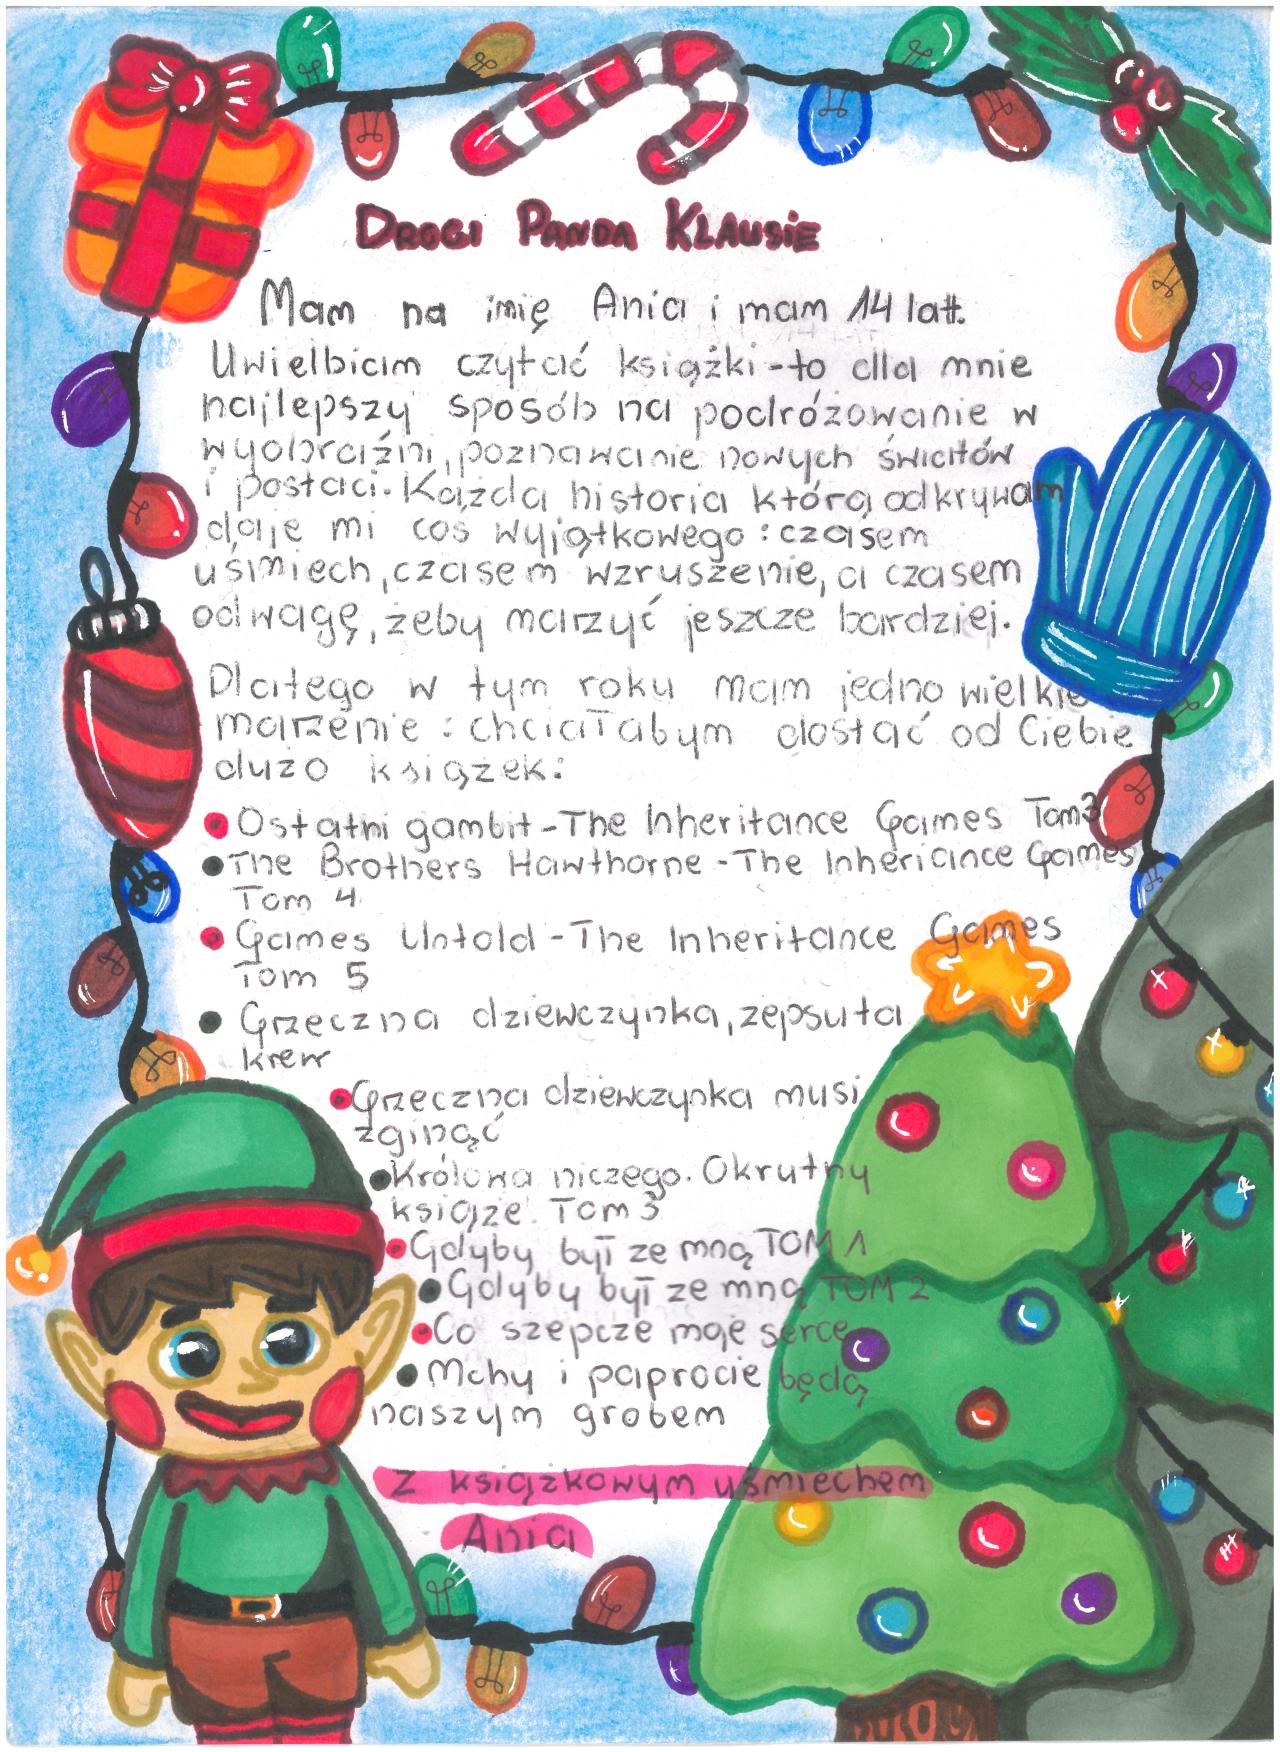 DROGI PANDA KLAUSIE
Mam na imię Ania i mam 14 lat.
Uwielbiam czytać książki - to dla mnie
najlepszy sposób na podróżowanie w
wyobraźni, poznawanie nowych światów
i postaci. Każda historia którą odkrywam
daje mi coś wyjątkowego : czasem
uśmiech, czasem wzruszenie, a czasem
odwagę, żeby marzyć jeszcze bardziej.
Dlatego w tym roku mam jedno wielkie
marzenie : chciałabym dostać od Ciebie
dużo książek:
• Ostatni gambit - The Inheritance Games Tom 3
• The Brothers Hawthorne - The Inheriance Games
Tom 4
• Games Untold - The Inheritance Games
Tom 5
• Grzeczna dziewczynka, zepsuta
krew
• Grzeczna dziewczynka musi
zginąć
• Królowa niczego. Okrutny
książę. Tom 3
• Gdyby był ze mną TOM 1
• Gdyby był ze mną TOM 2
• Co szepcze moje serce
• Mchy i paprocie będą
naszym grobem
Z książkowym uśmiechem
Ania